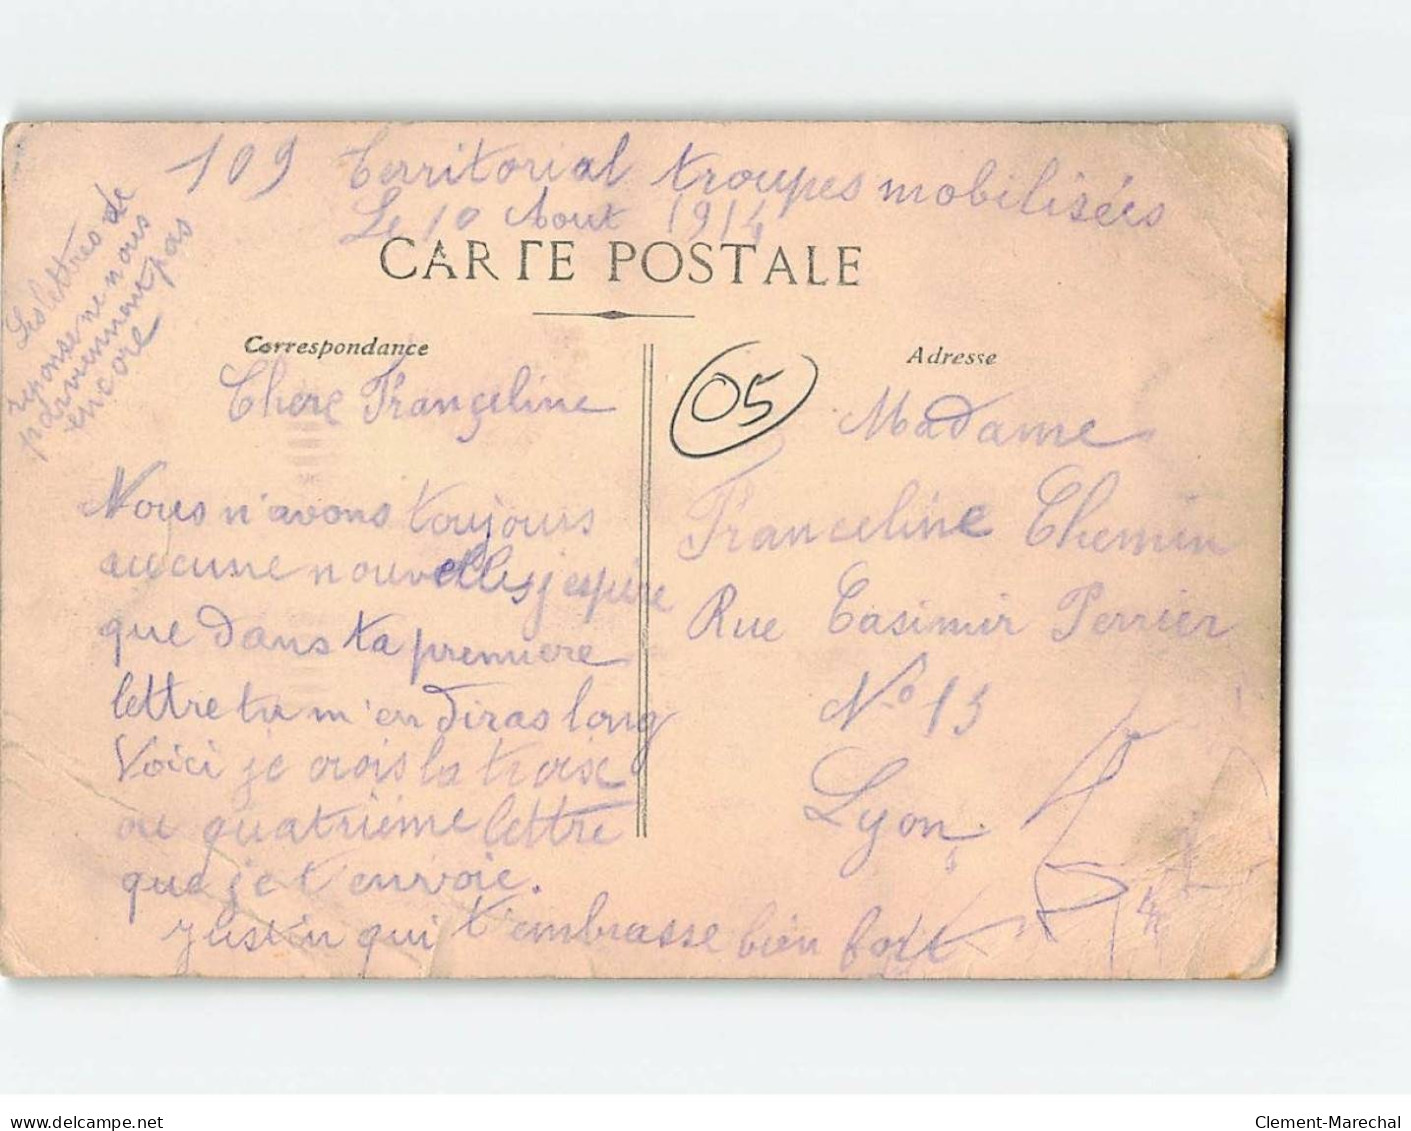 109 territorial troupes mobilisées
Le 10 Aout 1914
CARTE POSTALE
Les lettres de
reponse ne nous
parviennent pas
encore
Correspondance
Chere Françeline
Nous n'avons toujours
aucune nouvelles j'espère
que dans ta premiere
lettre tu m'en diras long
Voici je crois la troise
ou quatrième lettre
que je t'envoie.
Justin qui t'embrasse bien fort
05
Adresse
Madame
Franceline Chemin
Rue Casimir Perrier
No 13
Lyon
delcampe.net
Clement-Marechal